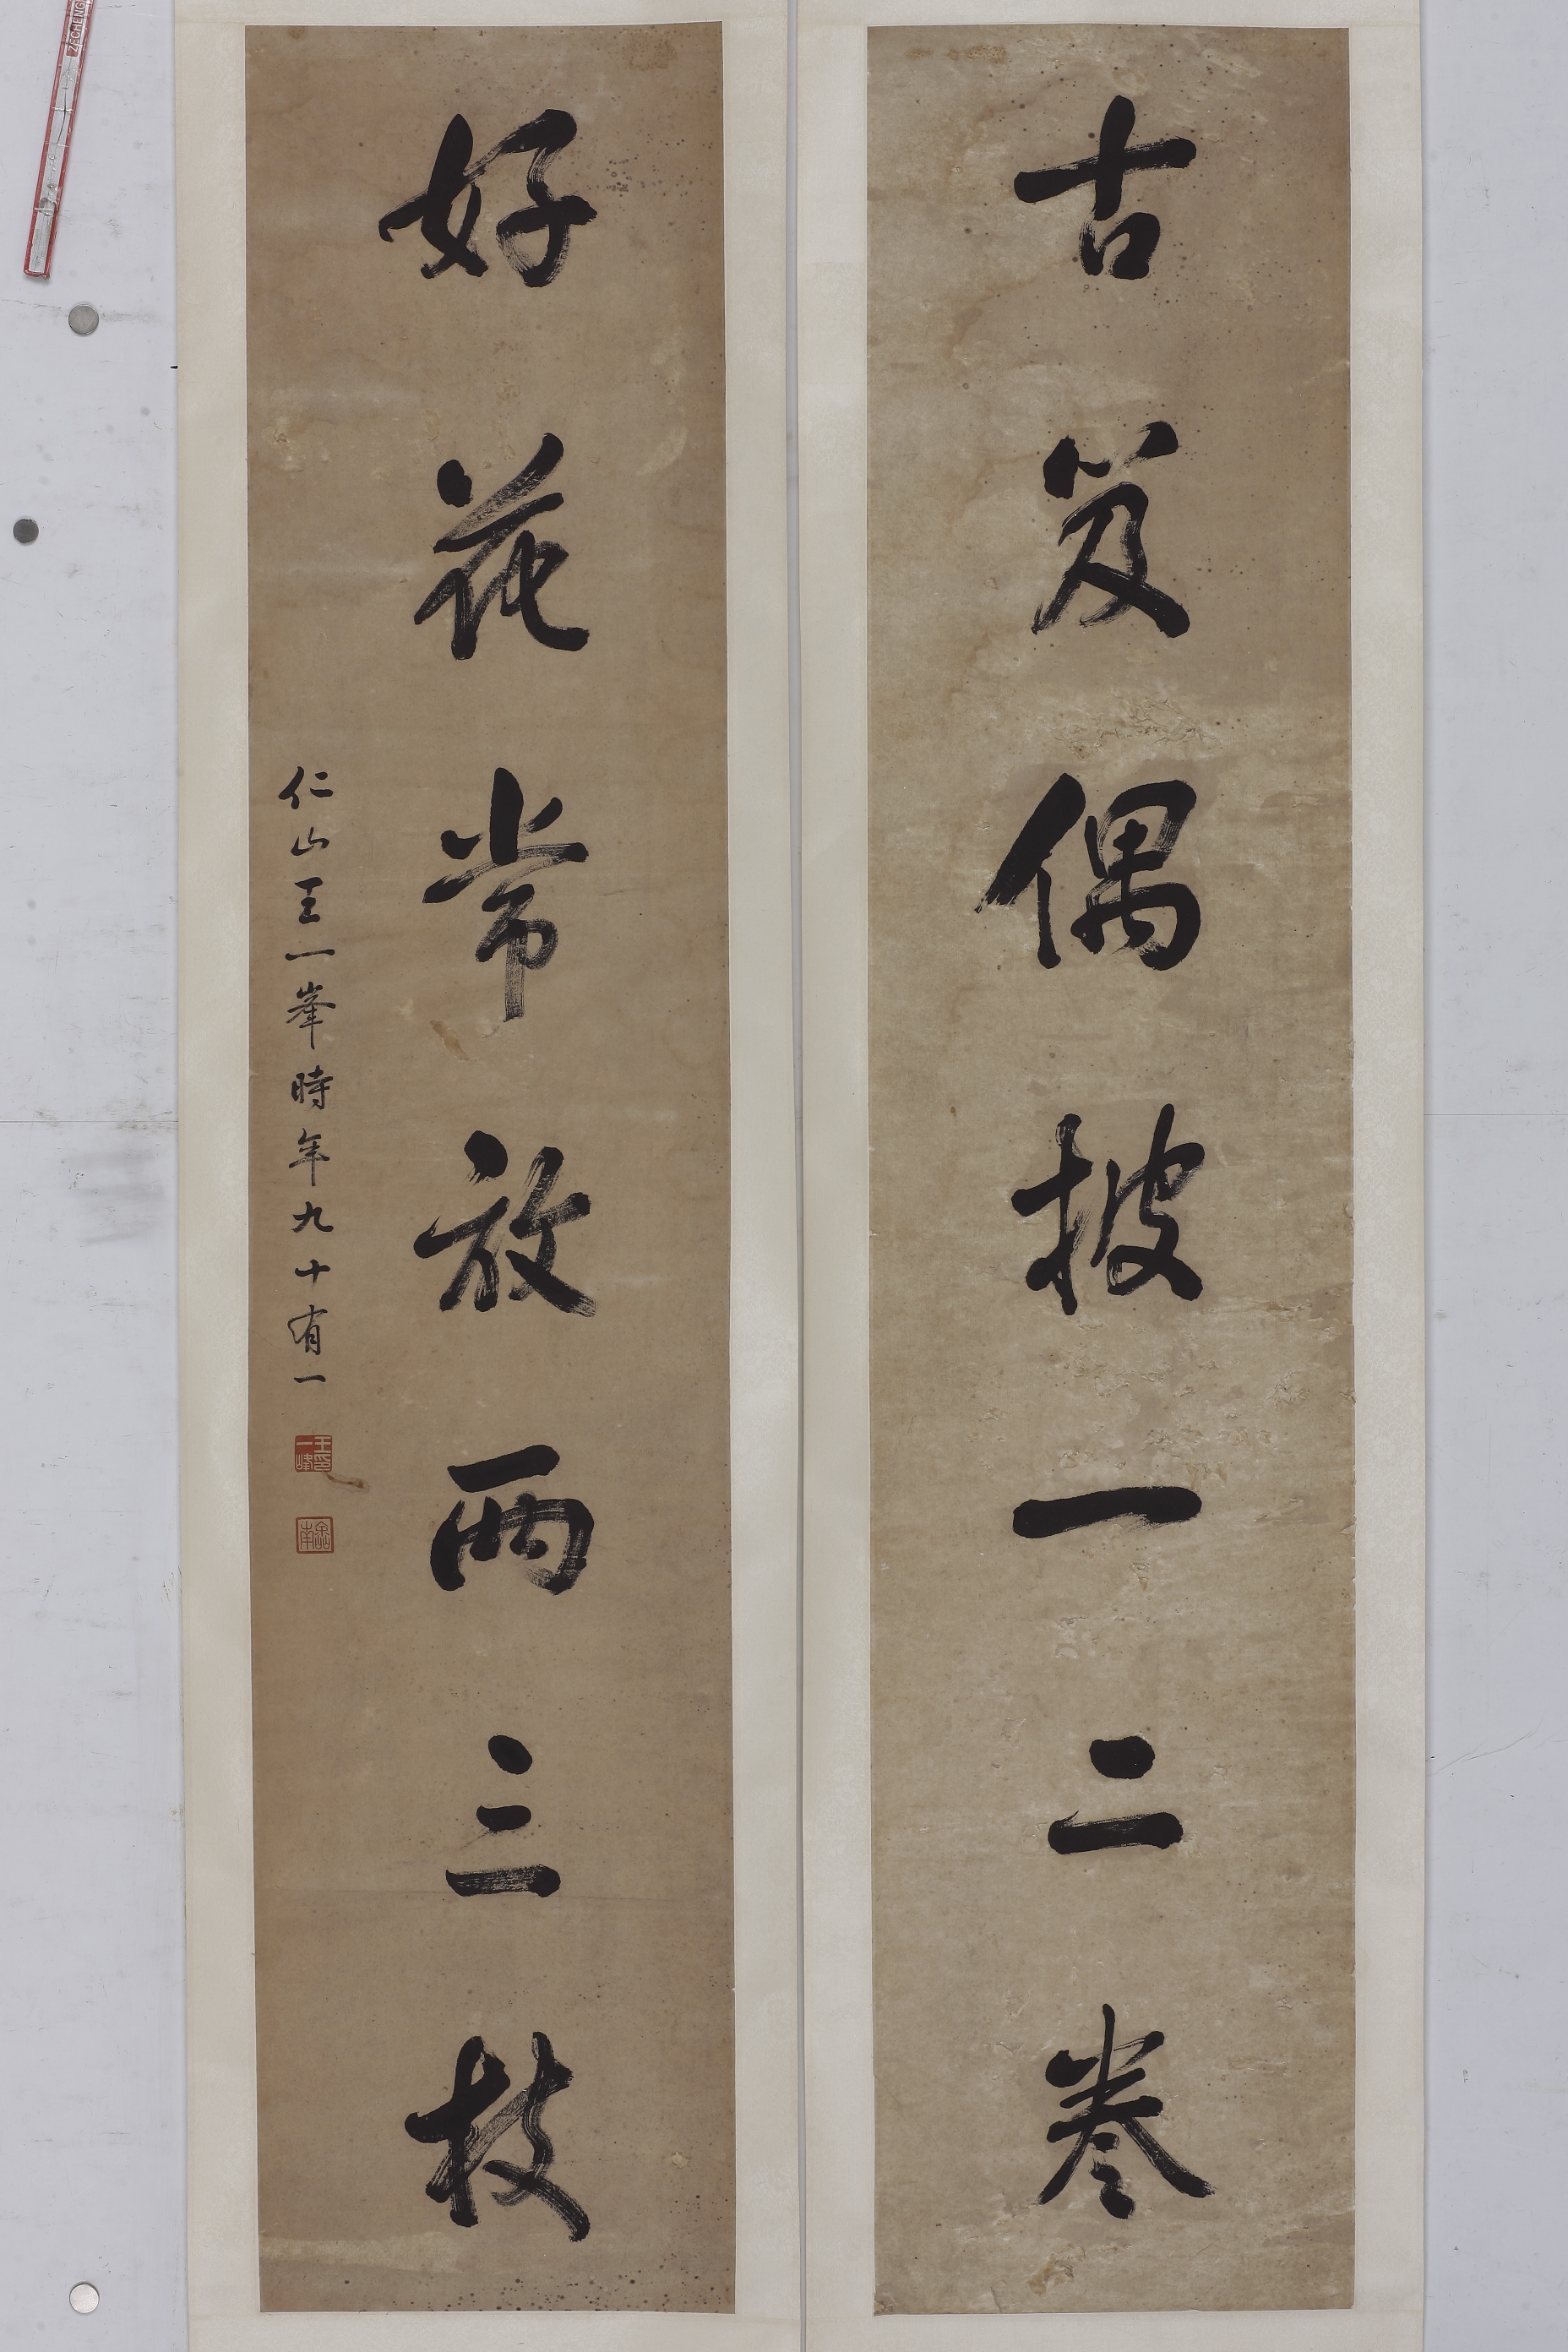 古笈偶披一二卷
好花常放兩三枝
仁山王一峯時年九十有一
王一峰印
ZECHENG